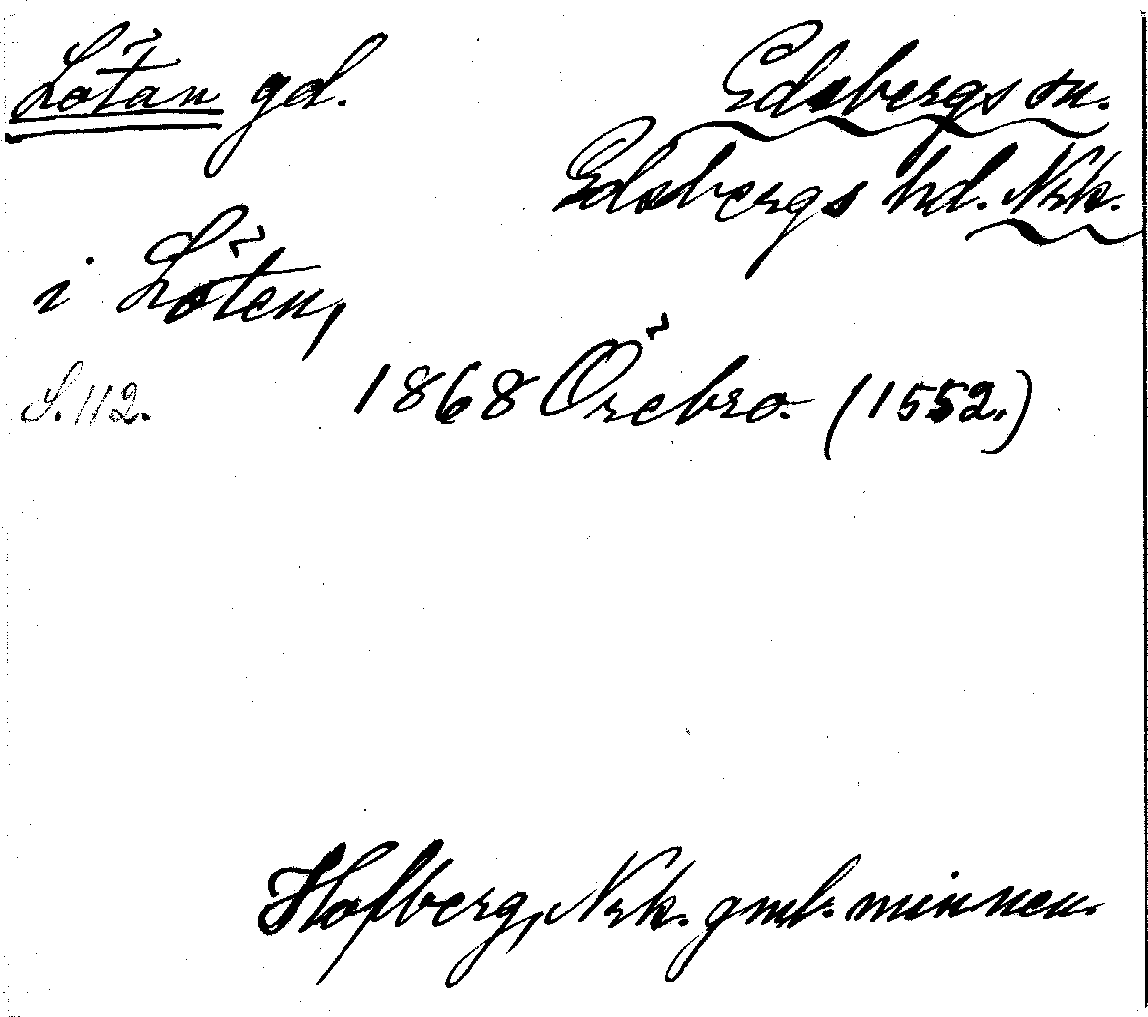 Lötan gd. Edsbergs sn.
Edsbergs hd. Nrk.
i Löten,
S. 112. 1868 Örebro. (1552.)
Hofberg, Nrk. gml. minnen.